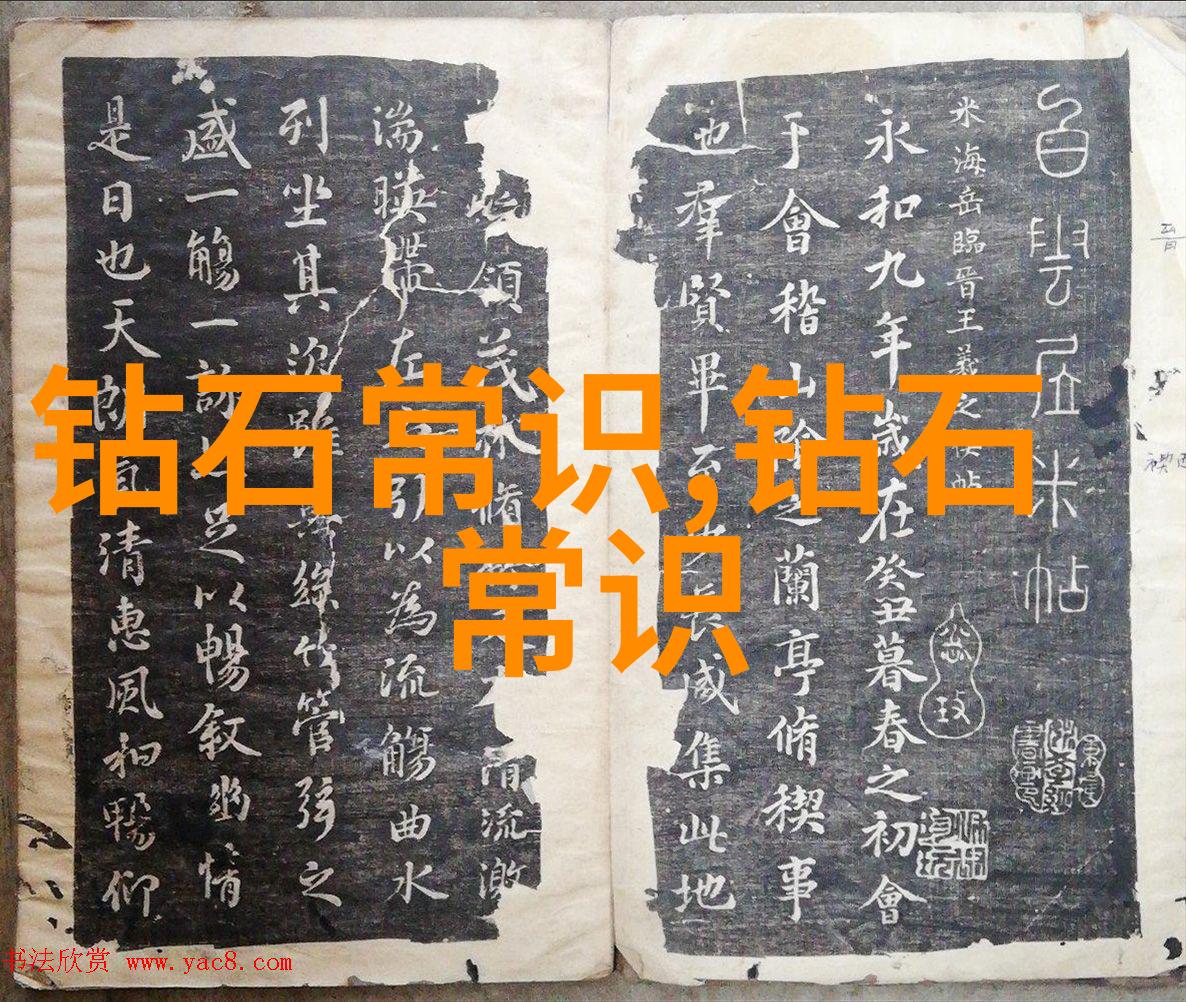 白雲居米帖
米海岳臨晉王羲之禊帖
永和九年歲在癸丑暮春之初會
于會稽山陰之蘭亭脩稧事
也羣賢畢至少長咸集此地
領茂林脩清流激
湍暎帶左右引以為流觴曲水
列坐其次雖無絲竹管弦之
盛一觴一詠亦足以暢敘幽情
是日也天朗氣清惠風和暢仰
钻石常识,钻石
常识
书法欣赏 www.yac8.com